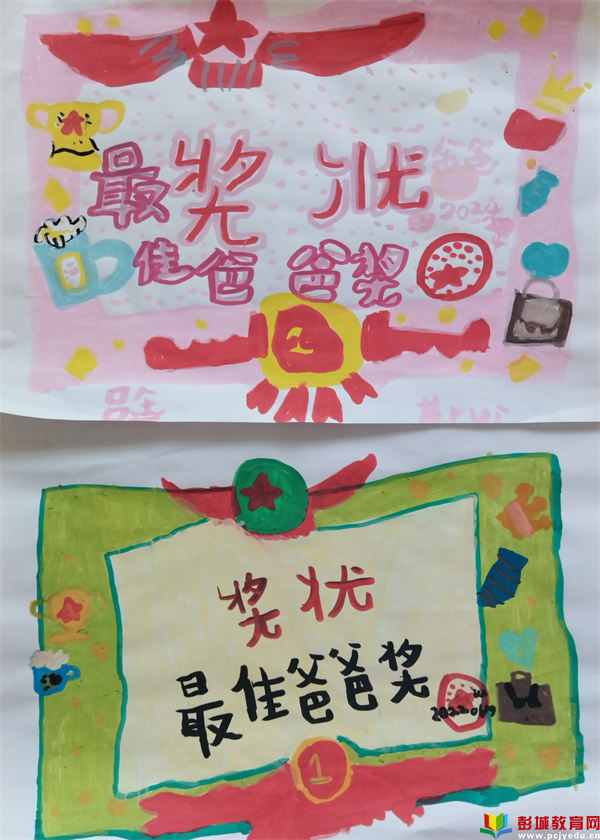 奖状
最佳爸爸奖
奖状
最佳爸爸奖
1
彭城教育网
www.pcjyedu.cn